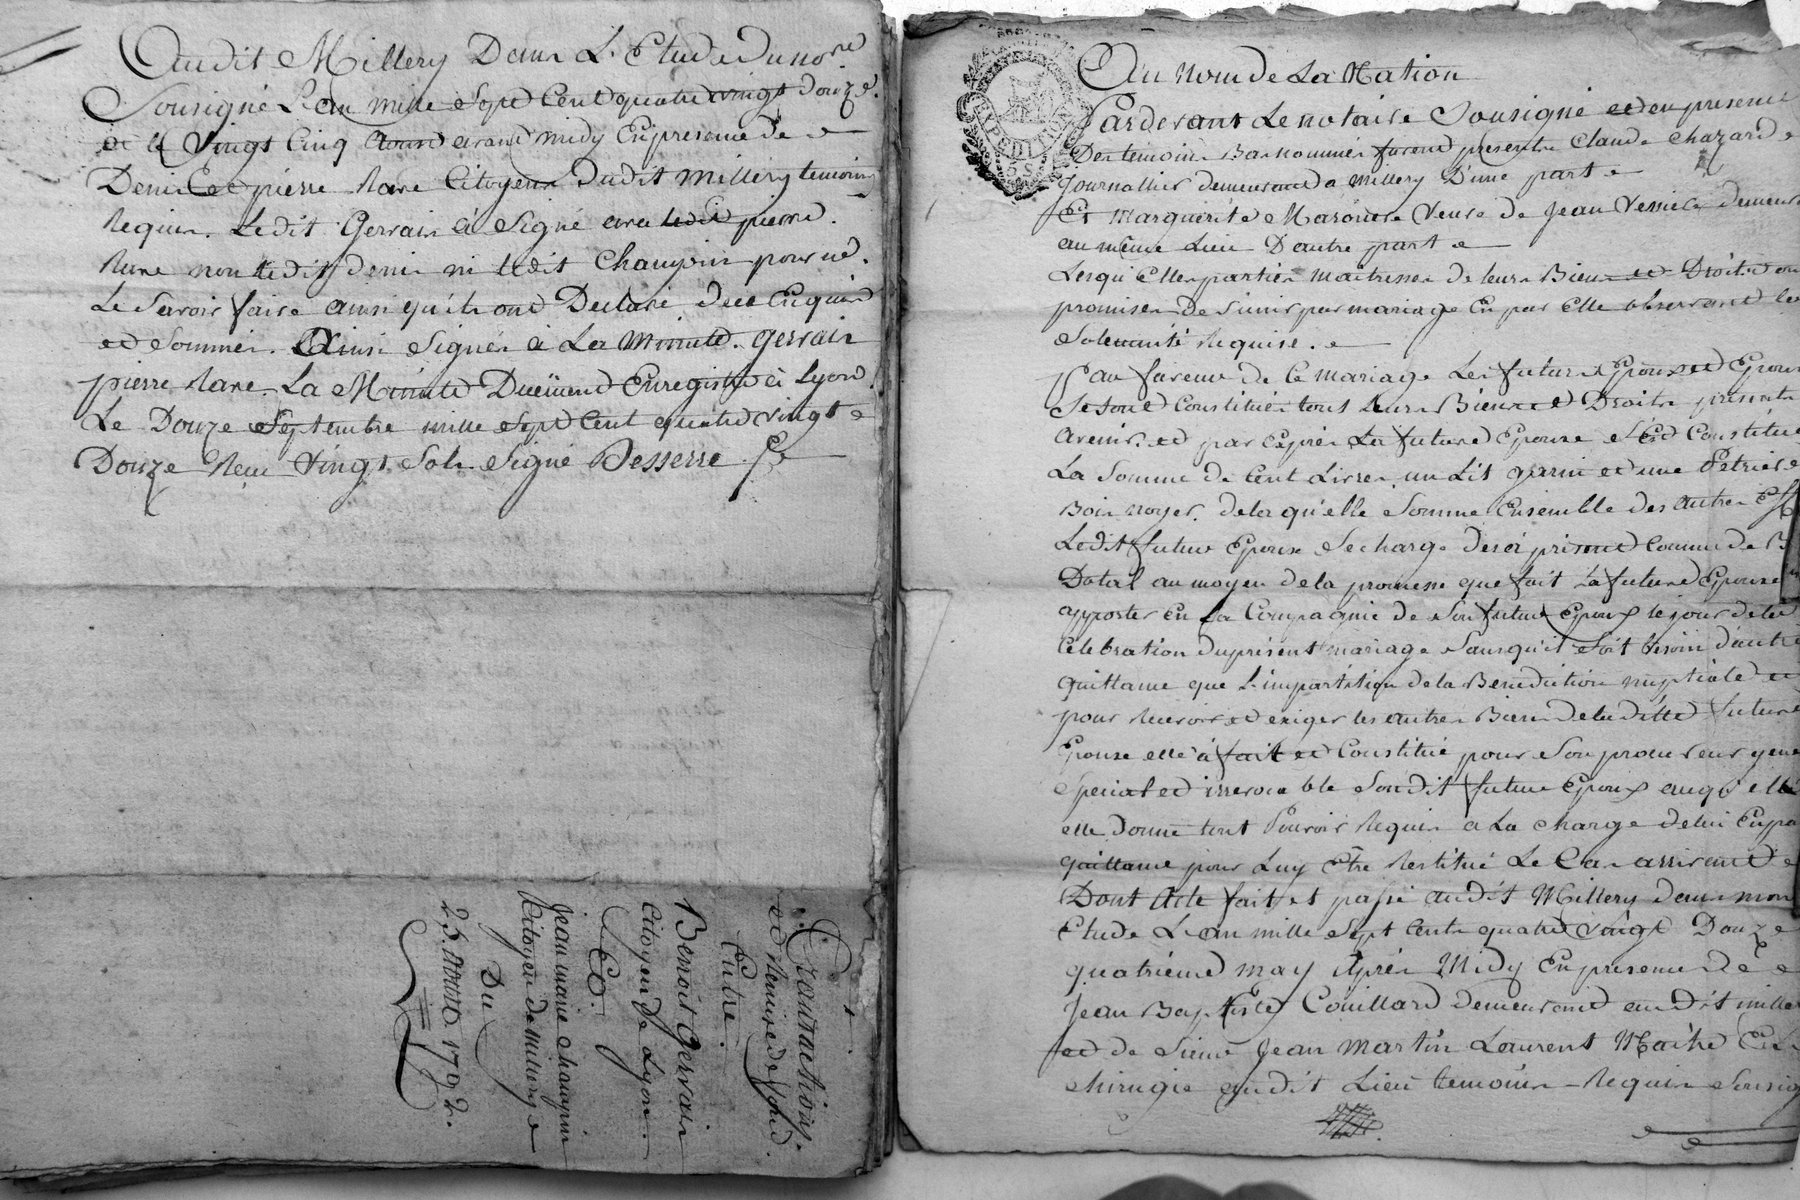 Audit Millery Dans L'Etude du no.re
Sousigné L'an mille Sept Cent quatre vingt Douze.
et le Vingt Cinq Aoust avant midy En presence de
Denis et pierre rave Citoyens dudit Millery temoins
Requis. Ledit Gervais à Signé avec ledit pierre
rave non ledit denis ni ledit Champin pour ne
Le Savoir faire ainsi qu'ils ont Declaré de ce Enquis
et Sommés. Ainsi Signés à La Minute. Gervais
pierre Rave. La Minute Duëment Enregistré à Lyon
Le Douze Septembre mille Sept Cent quatre vingt
Douze Reçu Vingt Sols Signé Besserre
Transaction
et Remise de fond.
Entre.
Benoit Gervais
Citoyen de Lyon.
Et.
Jean marie champin
Citoyen de Millery
Du
25. Aoust 1792.
EXPEDITIONS
5 S
Au Nom de La Nation
Pardevant Le notaire Sousigné et en presence
Des temoins Bas nommés furent presents Claude Chazard
Journallier demeurant a Millery D'une part
Et Marguerite Veuve de Jean demeur
au même Lieu D'autre part
Lesquelles parties maitresses de leurs Biens et Droits on
promises De S'unir par mariage En par Elle observant les
Solennité Requise.
En faveur de Ce mariage Les futurs Epoux et Epouse
Se sont Constitués tous leurs Biens et Droits presents
avenir. et par Exprès La future Epouse S'Est Constitué
La Somme de Cent Livres un Lit garni et une Petriere
Bois noyer. de laqu'elle Somme Ensemble des autres Eff
Ledit futur Epoux Se charge des à present comme de B
Dotal au moyen de la promesse que fait la future Epouse
apporter En La Compagnie de Son futur Epoux le jour de la
Celebration du present mariage Sans qu'il Soit besoin d'autre
quittance que L'impartition de la Benediction nuptiale et
pour Recevoir et exiger les autres Biens de la ditte future
Epouse elle à fait et Constitué pour Son procureur gene
Special et irrevocable Son dit futur Epoux auqu'el
elle Donne tout Pouvoir Requis a La charge de lui En pa
quittance pour Luy Être Restitué Le Cas arrivant
Dont Acte fait et passé audit Millery dans mon
Etude L'an mille Sept Cent quatre vingt Douze
quatrieme may Après Midy En presence de
Jean Baptiste Couillard demeurant audit mille
et de Sieur Jean Martin Laurent Maitre En
chirugie audit Lieu temoins Requis Sousig